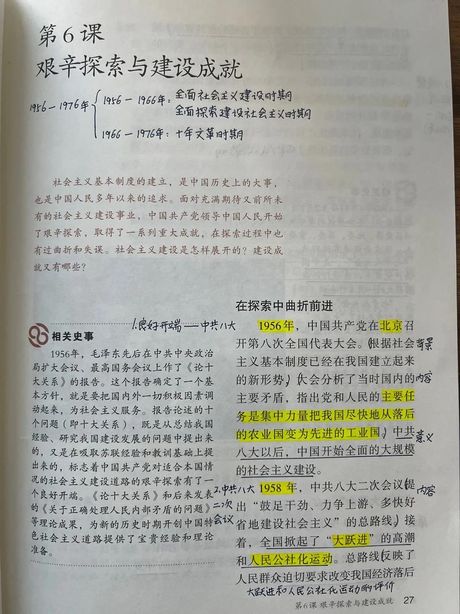 第6课
艰辛探索与建设成就
1956-1976年
1956-1966年：全面社会主义建设时期
全面探索建设社会主义时期
1966-1976年：十年文革时期
社会主义基本制度的建立，是中国历史上的大事，
也是中国人民多年以来的追求。面对充满期待又前所未
有的社会主义建设事业，中国共产党领导中国人民开始
了艰辛探索，取得了一系列重大成就，在探索过程中也
有过曲折和失误。社会主义建设是怎样展开的？建设成
就又有哪些？
1.良好开端——中共八大
相关史事
1956年，毛泽东先后在中共中央政治
局扩大会议、最高国务会议上作了《论十
大关系》的报告。这个报告确定了一个基
本方针，就是要把国内外一切积极因素调
动起来，为社会主义服务。报告论述的十
个问题（即十大关系），既是从总结我国
经验、研究我国建设发展的问题中提出来
的，又是在吸取苏联经验和教训基础上提
出来的，标志着中国共产党对适合本国情
况的社会主义建设道路的艰辛探索有了
一个良好开端。《论十大关系》和后来发表
的《关于正确处理人民内部矛盾的问题》
等理论成果，为新的历史时期开创中国特
色社会主义道路提供了宝贵经验和理论
准备。
在探索中曲折前进
1956年，中国共产党在北京召
开第八次全国代表大会。（根据社会 背景
主义基本制度已经在我国建立起来
的新形势，）（大会分析了当时国内的 内容
主要矛盾，指出党和人民的主要任
务是集中力量把我国尽快地从落后
的农业国变为先进的工业国。）中共 意义
八大以后，中国开始全面的大规模
的社会主义建设。
2.中共八大
二次
会议
1958年，中共八大二次会议（提 内容
出“鼓足干劲、力争上游、多快好
省地建设社会主义”的总路线。）接
着，全国掀起了“大跃进”的高潮
和人民公社化运动。总路线反映了
人民群众迫切要求改变我国经济落后
大跃进和人民公社化运动的评价
第6课 艰辛探索与建设成就 27